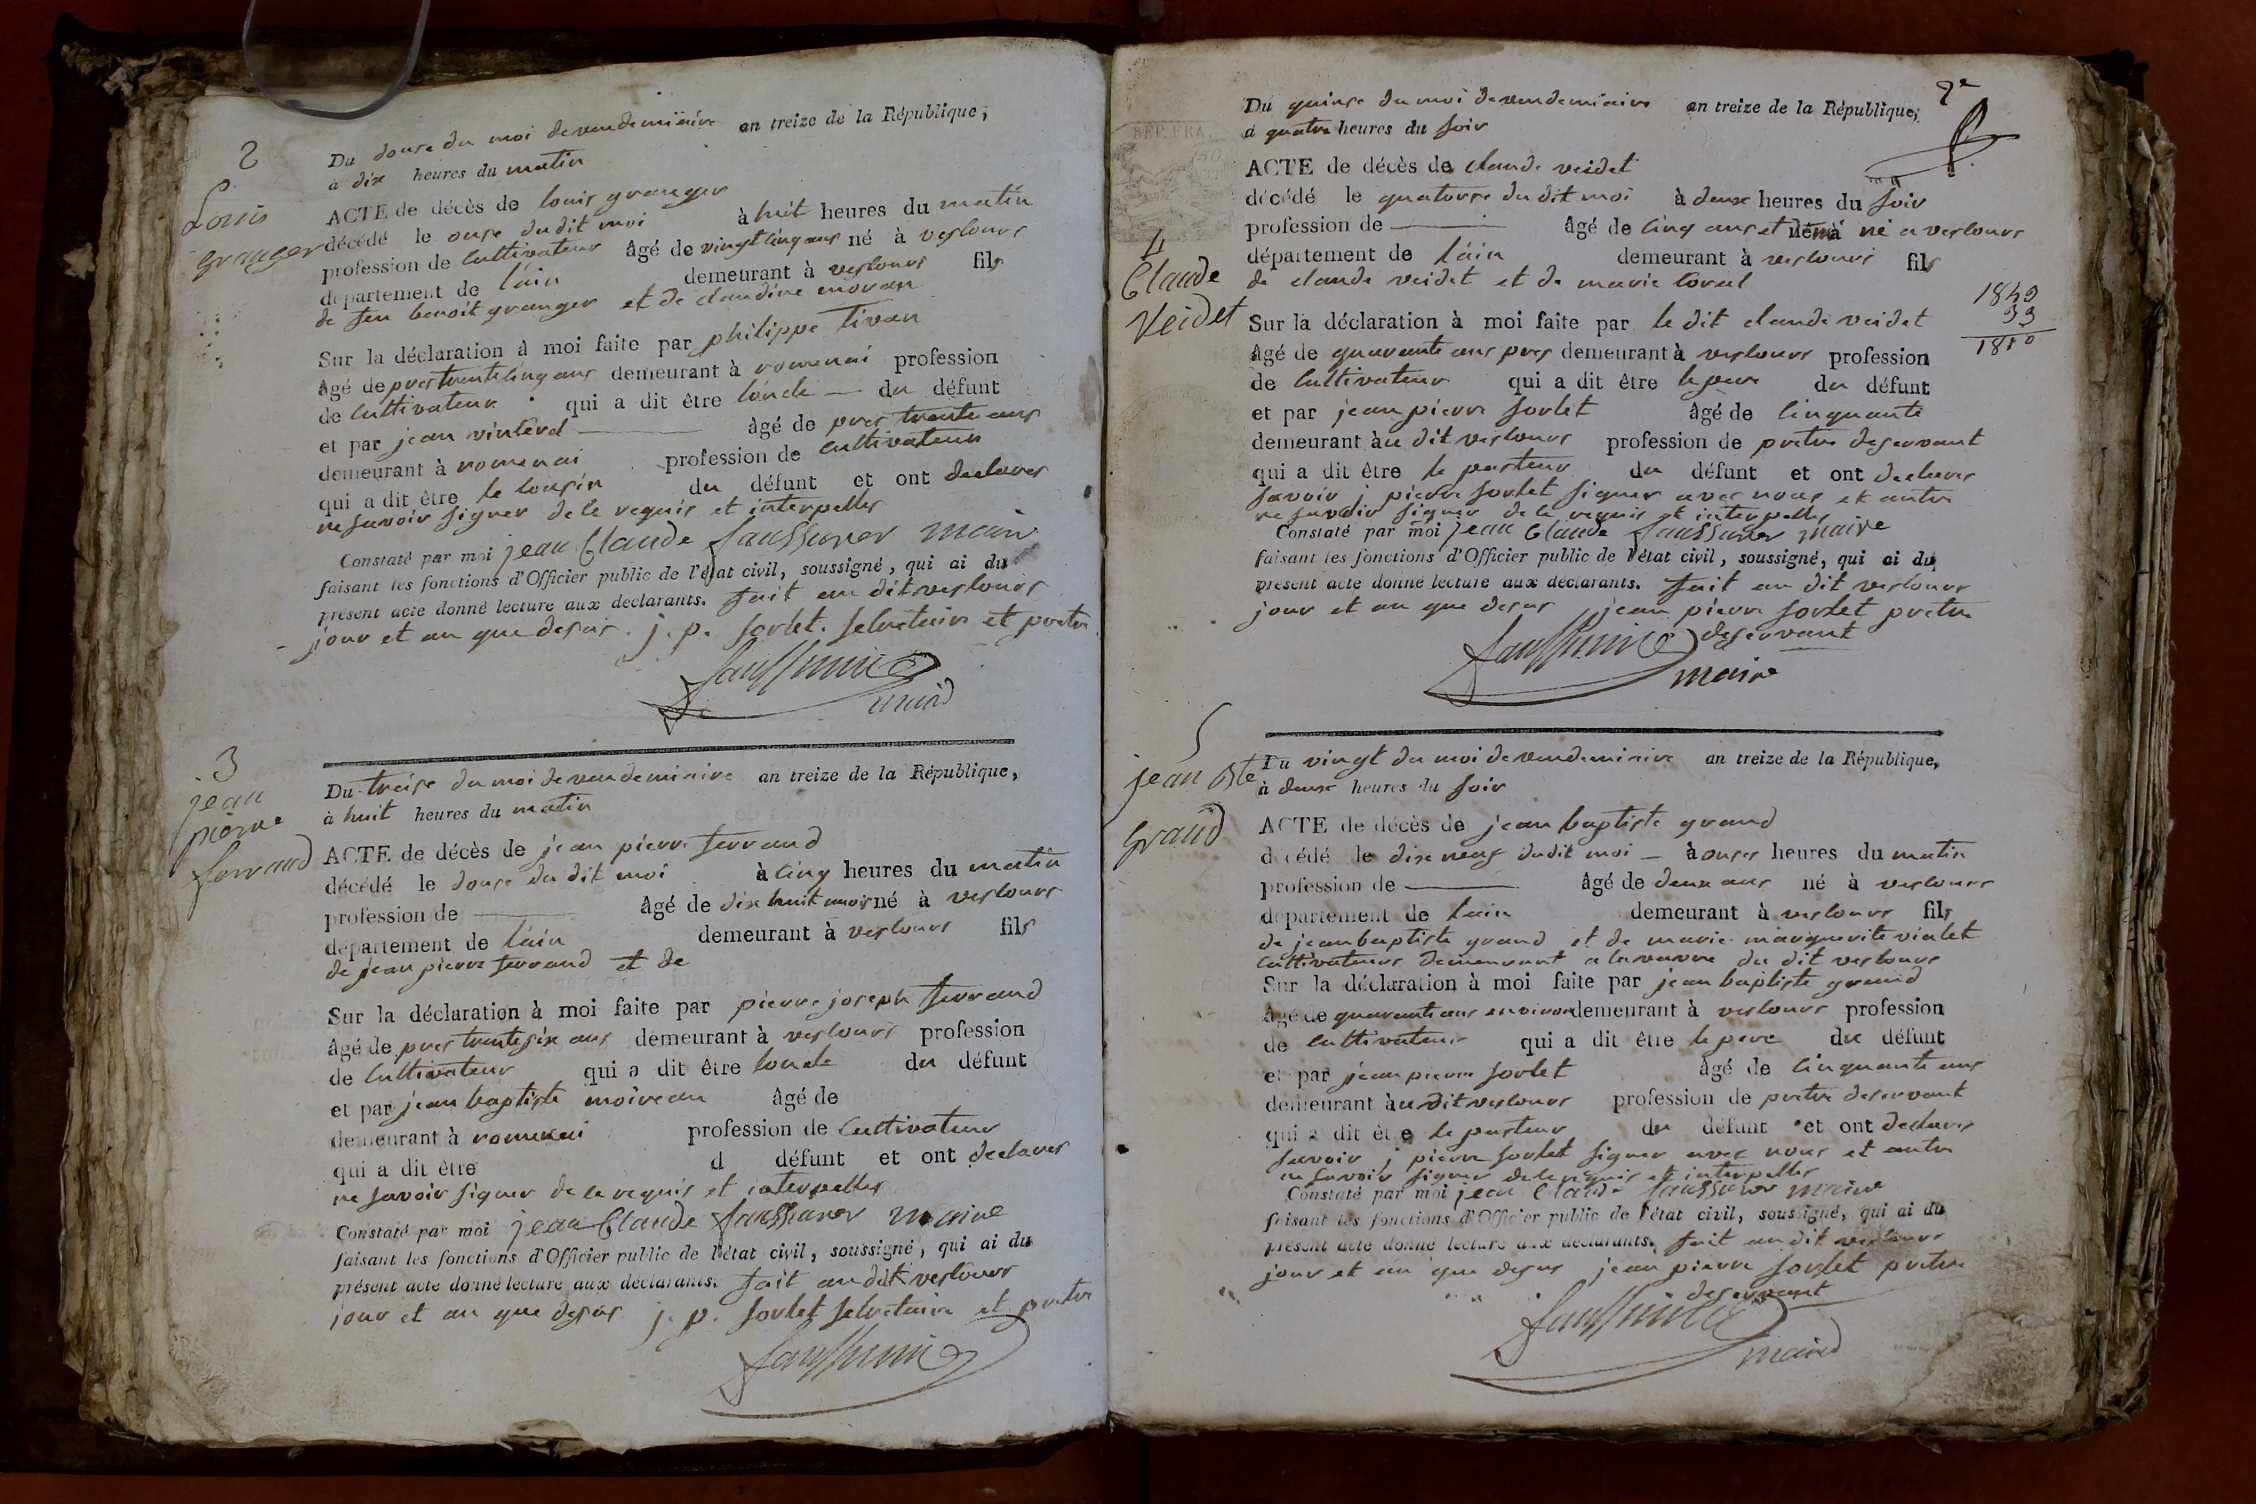 2
Louis
granger
Du douse du moi de vendemiaire an treize de la République,
à dix heures du matin
ACTE de décès de louis granger
décédé le onse du dit moi à huit heures du matin
profession de cultivateur âgé de vingt cinq ans né à verlours
département de l'ain demeurant à verlours fils
de feu benoit granger et de claudine moran
Sur la déclaration à moi faite par philippe tivan
âgé de pres trente cinq ans demeurant à romenai profession
de cultivateur qui a dit être l'oncle du défunt
et par jean vintend âgé de pres trente ans
demeurant à romenai profession de cultivateur
qui a dit être le cousin du défunt et ont declarer
ne savoir signer de ce requis et interpeller
Constaté par moi jean Claude maire
faisant les fonctions d'Officier public de l'état civil, soussigné, qui ai du
présent acte donné lecture aux déclarants. fait au dit verlours
jour et an que desus. j. p. sorlet. secretaire et pretre
maire
3
jean
pierre
ferrand
Du treise du moi de vendemiaire an treize de la République,
à huit heures du matin
ACTE de décès de jean pierre ferrand
décédé le douse du dit moi à cinq heures du matin
profession de âgé de dix huit mois né à verlours
département de l'ain demeurant à verlours fils
de jean pierre ferrand et de
Sur la déclaration à moi faite par pierre joseph ferrand
âgé de pres trente six ans demeurant à verlours profession
de cultivateur qui a dit être loncle du défunt
et par jean baptiste moireau âgé de
demeurant à romenai profession de cultivateur
qui a dit être d défunt et ont declarer
ne savoir signer de ce requis et interpeller
Constaté par moi jean Claude maire
faisant les fonctions d'Officier public de l'état civil, soussigné, qui ai du
présent acte donné lecture aux déclarants. fait au dit verlours
jour et an que desus j. p. sorlet secretaire et pretre
2e
REP. FRA.
4
Claude
Veidet
Du quinse du moi de vendemiaire an treize de la République,
à quatre heures du soir
ACTE de décès de claude veidet
décédé le quatorse du dit moi à deux heures du soir
profession de âgé de cinq ans et demi né a verlours
département de l'ain demeurant à verlours fils
de claude veidet et de marie loral
1849
33
1810
Sur la déclaration à moi faite par le dit claude veidet
âgé de quarante ans pres demeurant à verlours profession
de cultivateur qui a dit être le pere du défunt
et par jean pierre sorlet âgé de cinquante
demeurant àu dit verlours profession de pretre deservant
qui a dit être le pasteur du défunt et ont declarer
savoir j pierre sorlet signer avec nous et autre
ne savoir signer de ce requis et interpeller
Constaté par moi jean Claude maire
faisant les fonctions d'Officier public de l'état civil, soussigné, qui ai du
présent acte donné lecture aux déclarants. fait au dit verlours
jour et an que desus jean pierre sorlet pretre
deservant
maire
5
jean bte
grand
Du vingt du moi de vendemiaire an treize de la République,
à deux heures du soir
ACTE de décès de jean baptiste grand
décédé le dix neuf dudit moi à onse heures du matin
profession de âgé de deux ans né à verlours
département de lain demeurant à verlours fils
de jean baptiste grand et de marie marguerite vialet
cultivateurs demeurant a du dit verlours
Sur la déclaration à moi faite par jean baptiste grand
âgé de quarante ans environ demeurant à verlours profession
de cultivateur qui a dit être le pere du défunt
et par jean pierre sorlet âgé de cinquante ans
demeurant àu dit verlours profession de pretre deservant
qui a dit être le pasteur du défunt et ont declarer
savoir j pierre sorlet signer avec nous et autre
ne savoir signer de ce requis et interpeller
Constaté par moi jean Claude maire
faisant les fonctions d'Officier public de l'état civil, soussigné, qui ai du
présent acte donné lecture aux déclarants. fait au dit verlours
jour et an que desus jean pierre sorlet pretre
deservant
maire